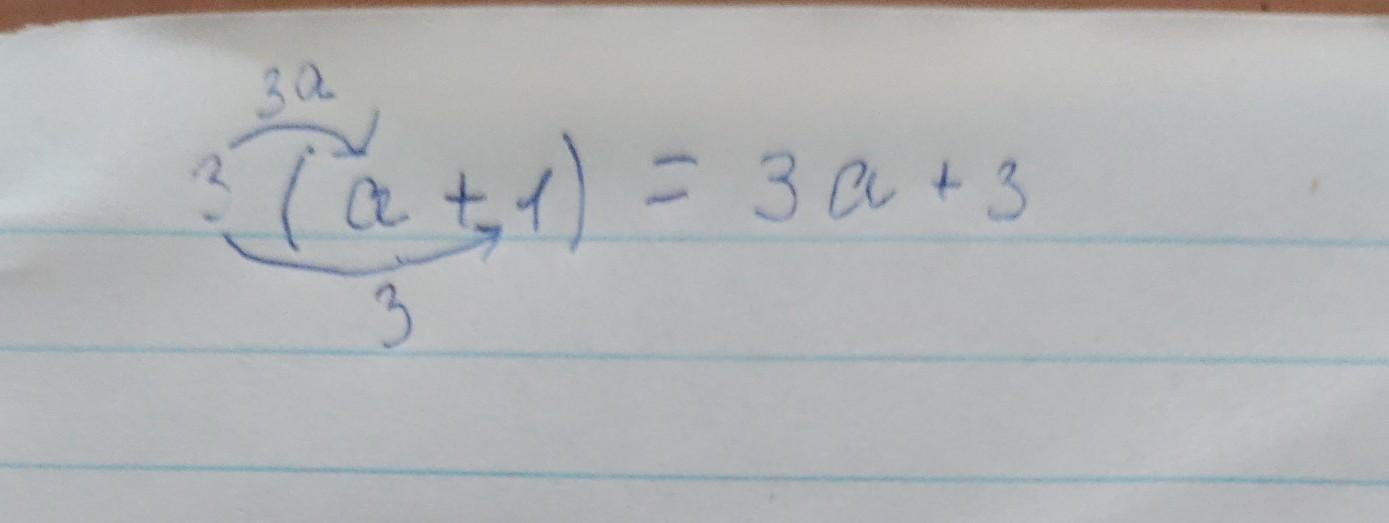 3a
3 (a + 1) = 3a + 3
3